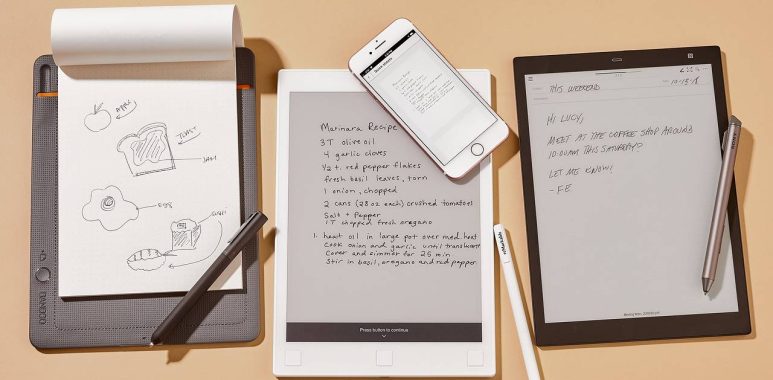 Apple
TOAST
JAM
EGG
SUSHI
Marinara Recipe
3 T olive oil
4 garlic cloves
1/2 t. red pepper flakes
fresh basil leaves, torn
1 onion, chopped
2 cans (28 oz each) crushed tomatoes
Salt + Pepper
1 T chopped fresh oregano
1. heat oil in large pot over med. heat
Cook onion and garlic until translucent
Cover and simmer for 25 min
Stir in basil, oregano and red pepper
Press button to continue
Marinara Recipe
reMarkable
THIS WEEKEND
10-13-18
HI LUCY,
MEET AT THE COFFEE SHOP AROUND
10:00AM THIS SATURDAY?
LET ME KNOW!
-F.E.
SONY